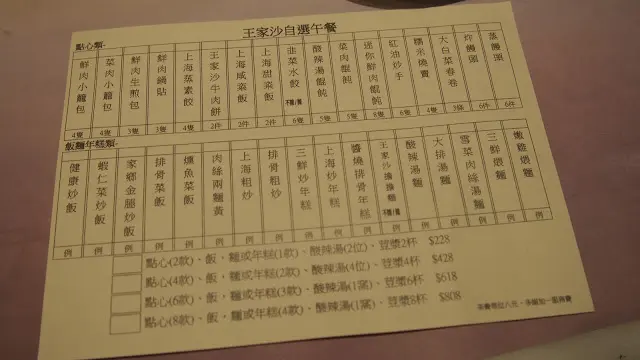 王家沙自選午餐
點心類-
鮮肉小籠包 4隻
菜肉小籠包 4隻
鮮肉生煎包 3隻
鮮肉鍋貼 3隻
上海蒸素餃 4隻
王家沙牛肉餅 2件
上海咸粢飯 2件
上海甜粢飯 2件
韭菜水餃 6隻
酸辣湯餛飩 5隻
菜肉餛飩 5隻
迷你鮮肉餛飩 8隻
紅油炒手 6隻
糯米燒賣 4隻
大白菜春卷 5條
炸饅頭 6件
蒸饅頭 6件
飯麵年糕類-
健康炒飯 例
蝦仁菜炒飯 例
家鄉金腿炒飯 例
排骨菜飯 例
燻魚菜飯 例
肉絲兩麵黃 例
上海粗炒 例
排骨粗炒 例
三鮮炒年糕 例
上海炒年糕 例
醬燒排骨年糕 例
王家沙擔擔麵
酸辣湯麵 例
大排湯麵 例
雪菜肉絲湯麵 例
三鮮煨麵 例
嫩雞煨麵 例
點心(2款)、飯，麵或年糕(1款)、酸辣湯(2位)、荳漿2杯 $228
點心(4款)、飯，麵或年糕(2款)、酸辣湯(4位)、荳漿4杯 $428
點心(6款)、飯，麵或年糕(3款)、酸辣湯(1窩)、荳漿6杯 $618
點心(8款)、飯，麵或年糕(4款)、酸辣湯(1窩)、荳漿8杯 $808
茶芥每位八元，淨額加一服務費